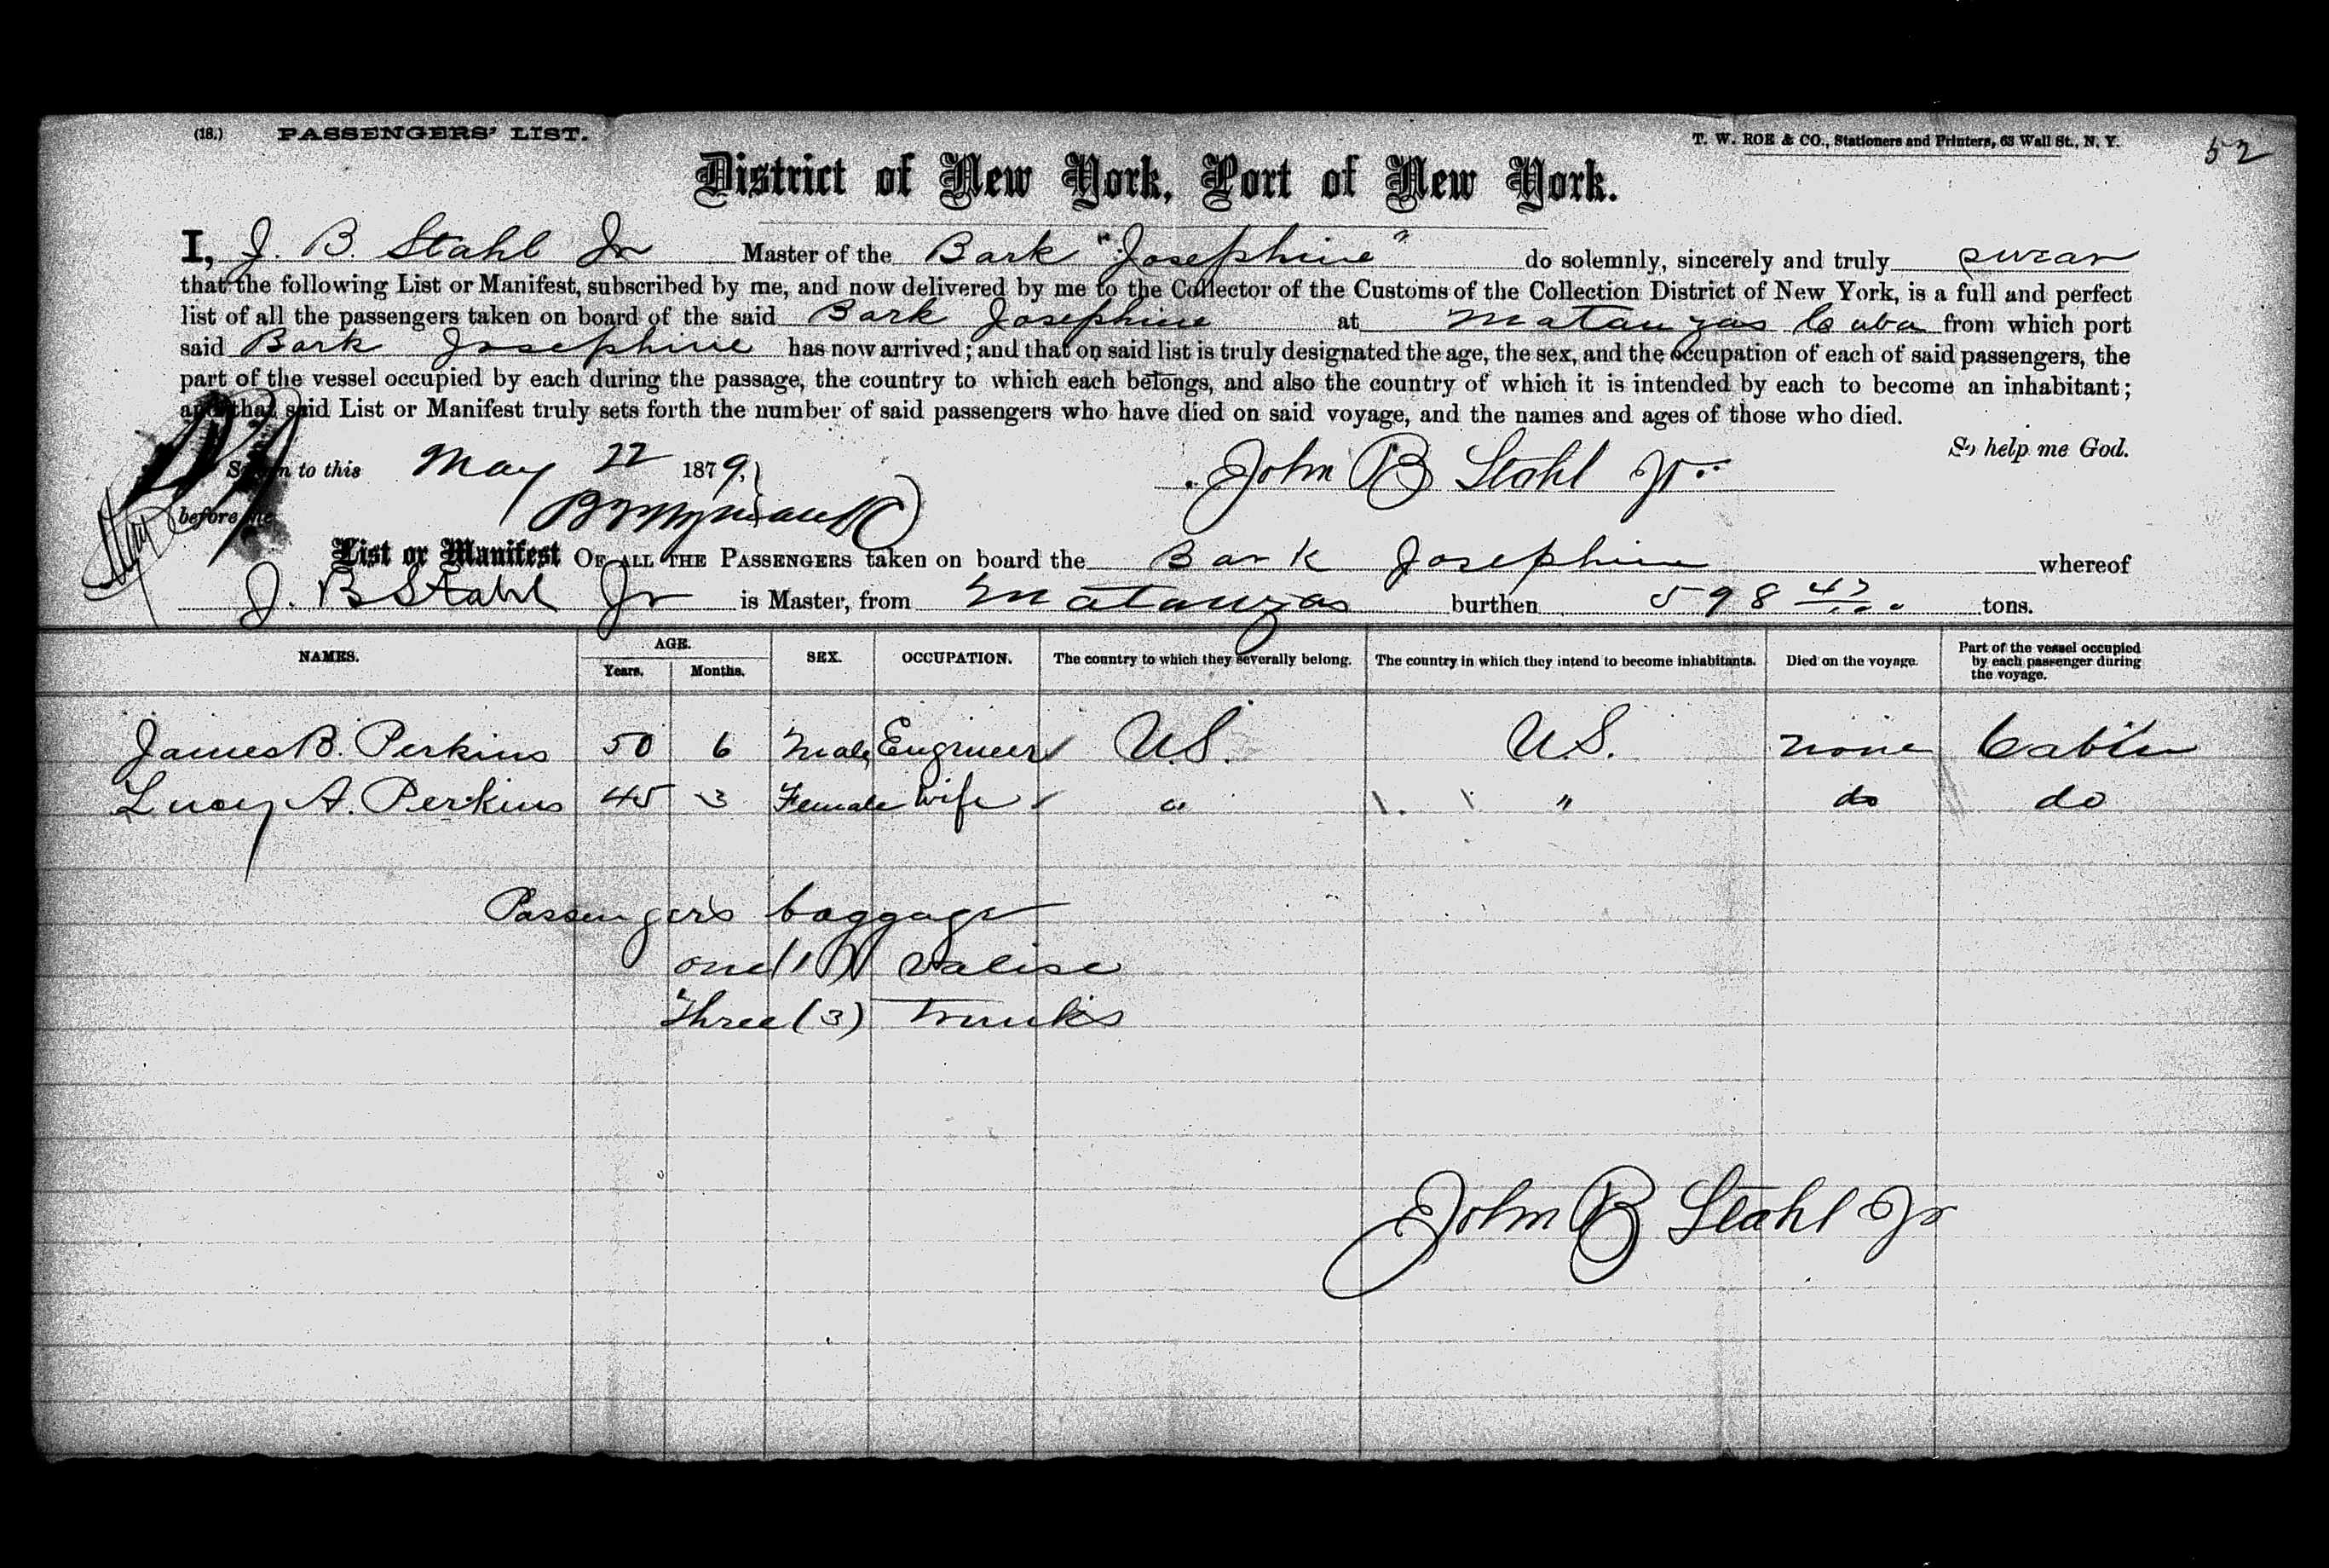 (18.) PASSENGERS' LIST. T. W. ROE & CO., Stationers and Printers, 63 Wall St., N. Y. 52
District of New York, Port of New York.
I, J. B. Stahl Jr Master of the Bark "Josephine" do solemnly, sincerely and truly swear
that the following List or Manifest, subscribed by me, and now delivered by me to the Collector of the Customs of the Collection District of New York, is a full and perfect
list of all the passengers taken on board of the said Bark Josephine at Matanzas Cuba from which port
said Bark Josephine has now arrived; and that on said list is truly designated the age, the sex, and the occupation of each of said passengers, the
part of the vessel occupied by each during the passage, the country to which each belongs, and also the country of which it is intended by each to become an inhabitant;
and that said List or Manifest truly sets forth the number of said passengers who have died on said voyage, and the names and ages of those who died.
So help me God.
Sworn to this May 22 1879, John B Stahl Jr.
before me
List or Manifest OF ALL THE PASSENGERS taken on board the Bark Josephine whereof
J. B Stahl Jr is Master, from Matanzas burthen 598 tons.
NAMES. AGE. Years. Months. SEX. OCCUPATION. The country to which they severally belong. The country in which they intend to become inhabitants. Died on the voyage. Part of the vessel occupied by each passenger during the voyage.
James B. Perkins 50 6 Male Engineer U.S. U.S. none Cabin
Lucy A. Perkins 45 3 Female Wife " " do do
Passengers baggage
one (1) valise
Three (3) Trunks
John B Stahl Jr